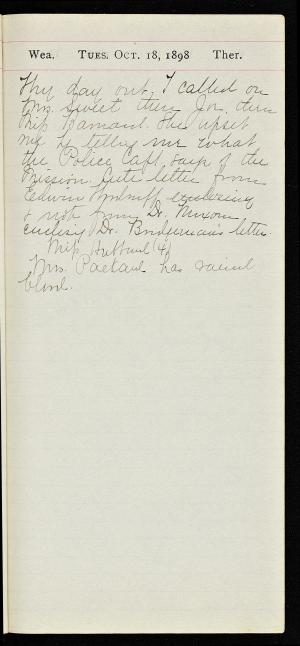 Wea. Tues. Oct. 18, 1898 Ther.
My day out. I called on
Mrs. Sweet then Jon, then
Miss Barnard. She upset
me by telling me what
the Police Capt. says of the
Mission. Cute letter from
Edwin enclosing
a note from Dr.
enclosing Dr. Bridgman's letter.
Miss Hubbard (4)
Mrs. Packard has
blood.